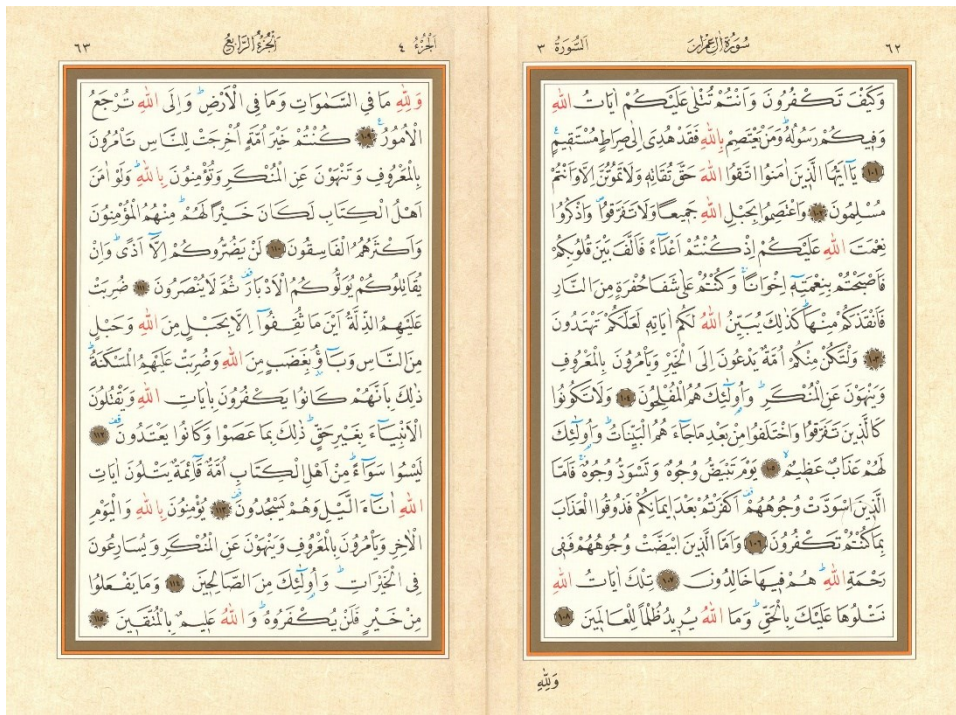 ٦٢ سُورَةُ اٰلِ عِمْرَانَ اَلسُّورَةُ ٣
وَكَيْفَ تَكْفُرُونَ وَاَنْتُمْ تُتْلٰى عَلَيْكُمْ اٰيَاتُ اللّٰهِ
وَفِيكُمْ رَسُولُهُۜ وَمَنْ يَعْتَصِمْ بِاللّٰهِ فَقَدْ هُدِىَ اِلٰى صِرَاطٍ مُسْتَق۪يمٍ
١٠١ يَٓا اَيُّهَا الَّذ۪ينَ اٰمَنُوا اتَّقُوا اللّٰهَ حَقَّ تُقَاتِه۪ وَلَا تَمُوتُنَّ اِلَّا وَاَنْتُمْ
مُسْلِمُونَ ١٠٢ وَاعْتَصِمُوا بِحَبْلِ اللّٰهِ جَم۪يعًا وَلَا تَفَرَّقُواۖ وَاذْكُرُوا
نِعْمَتَ اللّٰهِ عَلَيْكُمْ اِذْ كُنْتُمْ اَعْدَٓاءً فَاَلَّفَ بَيْنَ قُلُوبِكُمْ
فَاَصْبَحْتُمْ بِنِعْمَتِه۪ٓ اِخْوَانًاۚ وَكُنْتُمْ عَلٰى شَفَا حُفْرَةٍ مِنَ النَّارِ
فَاَنْقَذَكُمْ مِنْهَاۜ كَذٰلِكَ يُبَيِّنُ اللّٰهُ لَكُمْ اٰيَاتِه۪ لَعَلَّكُمْ تَهْتَدُونَ
١٠٣ وَلْتَكُنْ مِنْكُمْ اُمَّةٌ يَدْعُونَ اِلَى الْخَيْرِ وَيَأْمُرُونَ بِالْمَعْرُوفِ
وَيَنْهَوْنَ عَنِ الْمُنْكَرِۜ وَاُو۬لٰٓئِكَ هُمُ الْمُفْلِحُونَ ١٠٤ وَلَا تَكُونُوا
كَالَّذ۪ينَ تَفَرَّقُوا وَاخْتَلَفُوا مِنْ بَعْدِ مَا جَٓاءَهُمُ الْبَيِّنَاتُۜ وَاُو۬لٰٓئِكَ
لَهُمْ عَذَابٌ عَظ۪يمٌۙ ١٠٥ يَوْمَ تَبْيَضُّ وُجُوهٌ وَتَسْوَدُّ وُجُوهٌۚ فَاَمَّا
الَّذ۪ينَ اسْوَدَّتْ وُجُوهُهُمْ۠ اَكَفَرْتُمْ بَعْدَ ا۪يمَانِكُمْ فَذُوقُوا الْعَذَابَ
بِمَا كُنْتُمْ تَكْفُرُونَ ١٠٦ وَاَمَّا الَّذ۪ينَ ابْيَضَّتْ وُجُوهُهُمْ فَف۪ى
رَحْمَةِ اللّٰهِۜ هُمْ ف۪يهَا خَالِدُونَ ١٠٧ تِلْكَ اٰيَاتُ اللّٰهِ
نَتْلُوهَا عَلَيْكَ بِالْحَقِّۜ وَمَا اللّٰهُ يُر۪يدُ ظُلْمًا لِلْعَالَم۪ينَ ١٠٨
وَلِلّٰهِ
اَلْجُزْءُ ٤ اَلْجُزْءُ الرَّابِعُ ٦٣
وَلِلّٰهِ مَا فِى السَّمٰوَاتِ وَمَا فِى الْاَرْضِۜ وَاِلَى اللّٰهِ تُرْجَعُ
الْاُمُورُ۟ ١٠٩ كُنْتُمْ خَيْرَ اُمَّةٍ اُخْرِجَتْ لِلنَّاسِ تَأْمُرُونَ
بِالْمَعْرُوفِ وَتَنْهَوْنَ عَنِ الْمُنْكَرِ وَتُؤْمِنُونَ بِاللّٰهِۜ وَلَوْ اٰمَنَ
اَهْلُ الْكِتَابِ لَكَانَ خَيْرًا لَهُمْۜ مِنْهُمُ الْمُؤْمِنُونَ
وَاَكْثَرُهُمُ الْفَاسِقُونَ ١١٠ لَنْ يَضُرُّوكُمْ اِلَّٓا اَذًىۜ وَاِنْ
يُقَاتِلُوكُمْ يُوَلُّوكُمُ الْاَدْبَارَ۠ ثُمَّ لَا يُنْصَرُونَ ١١١ ضُرِبَتْ
عَلَيْهِمُ الذِّلَّةُ اَيْنَ مَا ثُقِفُٓوا اِلَّا بِحَبْلٍ مِنَ اللّٰهِ وَحَبْلٍ
مِنَ النَّاسِ وَبَٓاؤُ۫ بِغَضَبٍ مِنَ اللّٰهِ وَضُرِبَتْ عَلَيْهِمُ الْمَسْكَنَةُۜ
ذٰلِكَ بِاَنَّهُمْ كَانُوا يَكْفُرُونَ بِاٰيَاتِ اللّٰهِ وَيَقْتُلُونَ
الْاَنْبِيَٓاءَ بِغَيْرِ حَقٍّۜ ذٰلِكَ بِمَا عَصَوْا وَكَانُوا يَعْتَدُونَ۠ ١١٢
لَيْسُوا سَوَٓاءًۜ مِنْ اَهْلِ الْكِتَابِ اُمَّةٌ قَٓائِمَةٌ يَتْلُونَ اٰيَاتِ
اللّٰهِ اٰنَٓاءَ الَّيْلِ وَهُمْ يَسْجُدُونَ۠ ١١٣ يُؤْمِنُونَ بِاللّٰهِ وَالْيَوْمِ
الْاٰخِرِ وَيَأْمُرُونَ بِالْمَعْرُوفِ وَيَنْهَوْنَ عَنِ الْمُنْكَرِ وَيُسَارِعُونَ
فِى الْخَيْرَاتِۜ وَاُو۬لٰٓئِكَ مِنَ الصَّالِح۪ينَ ١١٤ وَمَا يَفْعَلُوا
مِنْ خَيْرٍ فَلَنْ يُكْفَرُوهُۜ وَاللّٰهُ عَل۪يمٌ بِالْمُتَّق۪ينَ ١١٥